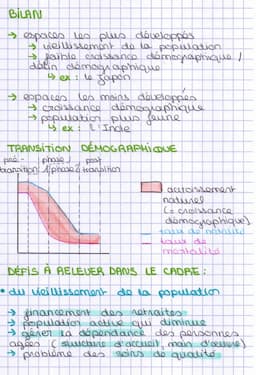 BILAN
→ espaces les plus développés
→ vieillissement de la population
→ faible croissance démographique /
déclin démographique
↳ ex : le Japon
→ espaces les moins développés
→ croissance démographique
→ population plus jeune
↳ ex : L'Inde
TRANSITION DÉMOGRAPHIQUE
pré- phase post
transition 1 phase 2 transition
accroissement
naturel
(= croissance
démographique)
taux de natalité
taux de
mortalité
DÉFIS À RELEVER DANS LE CADRE :
• du vieillissement de la population
→ financement des retraites
→ population active qui diminue
→ gérer la dépendance des personnes
agées (structure d'accueil, main d'œuvre)
→ problème des soins de qualité